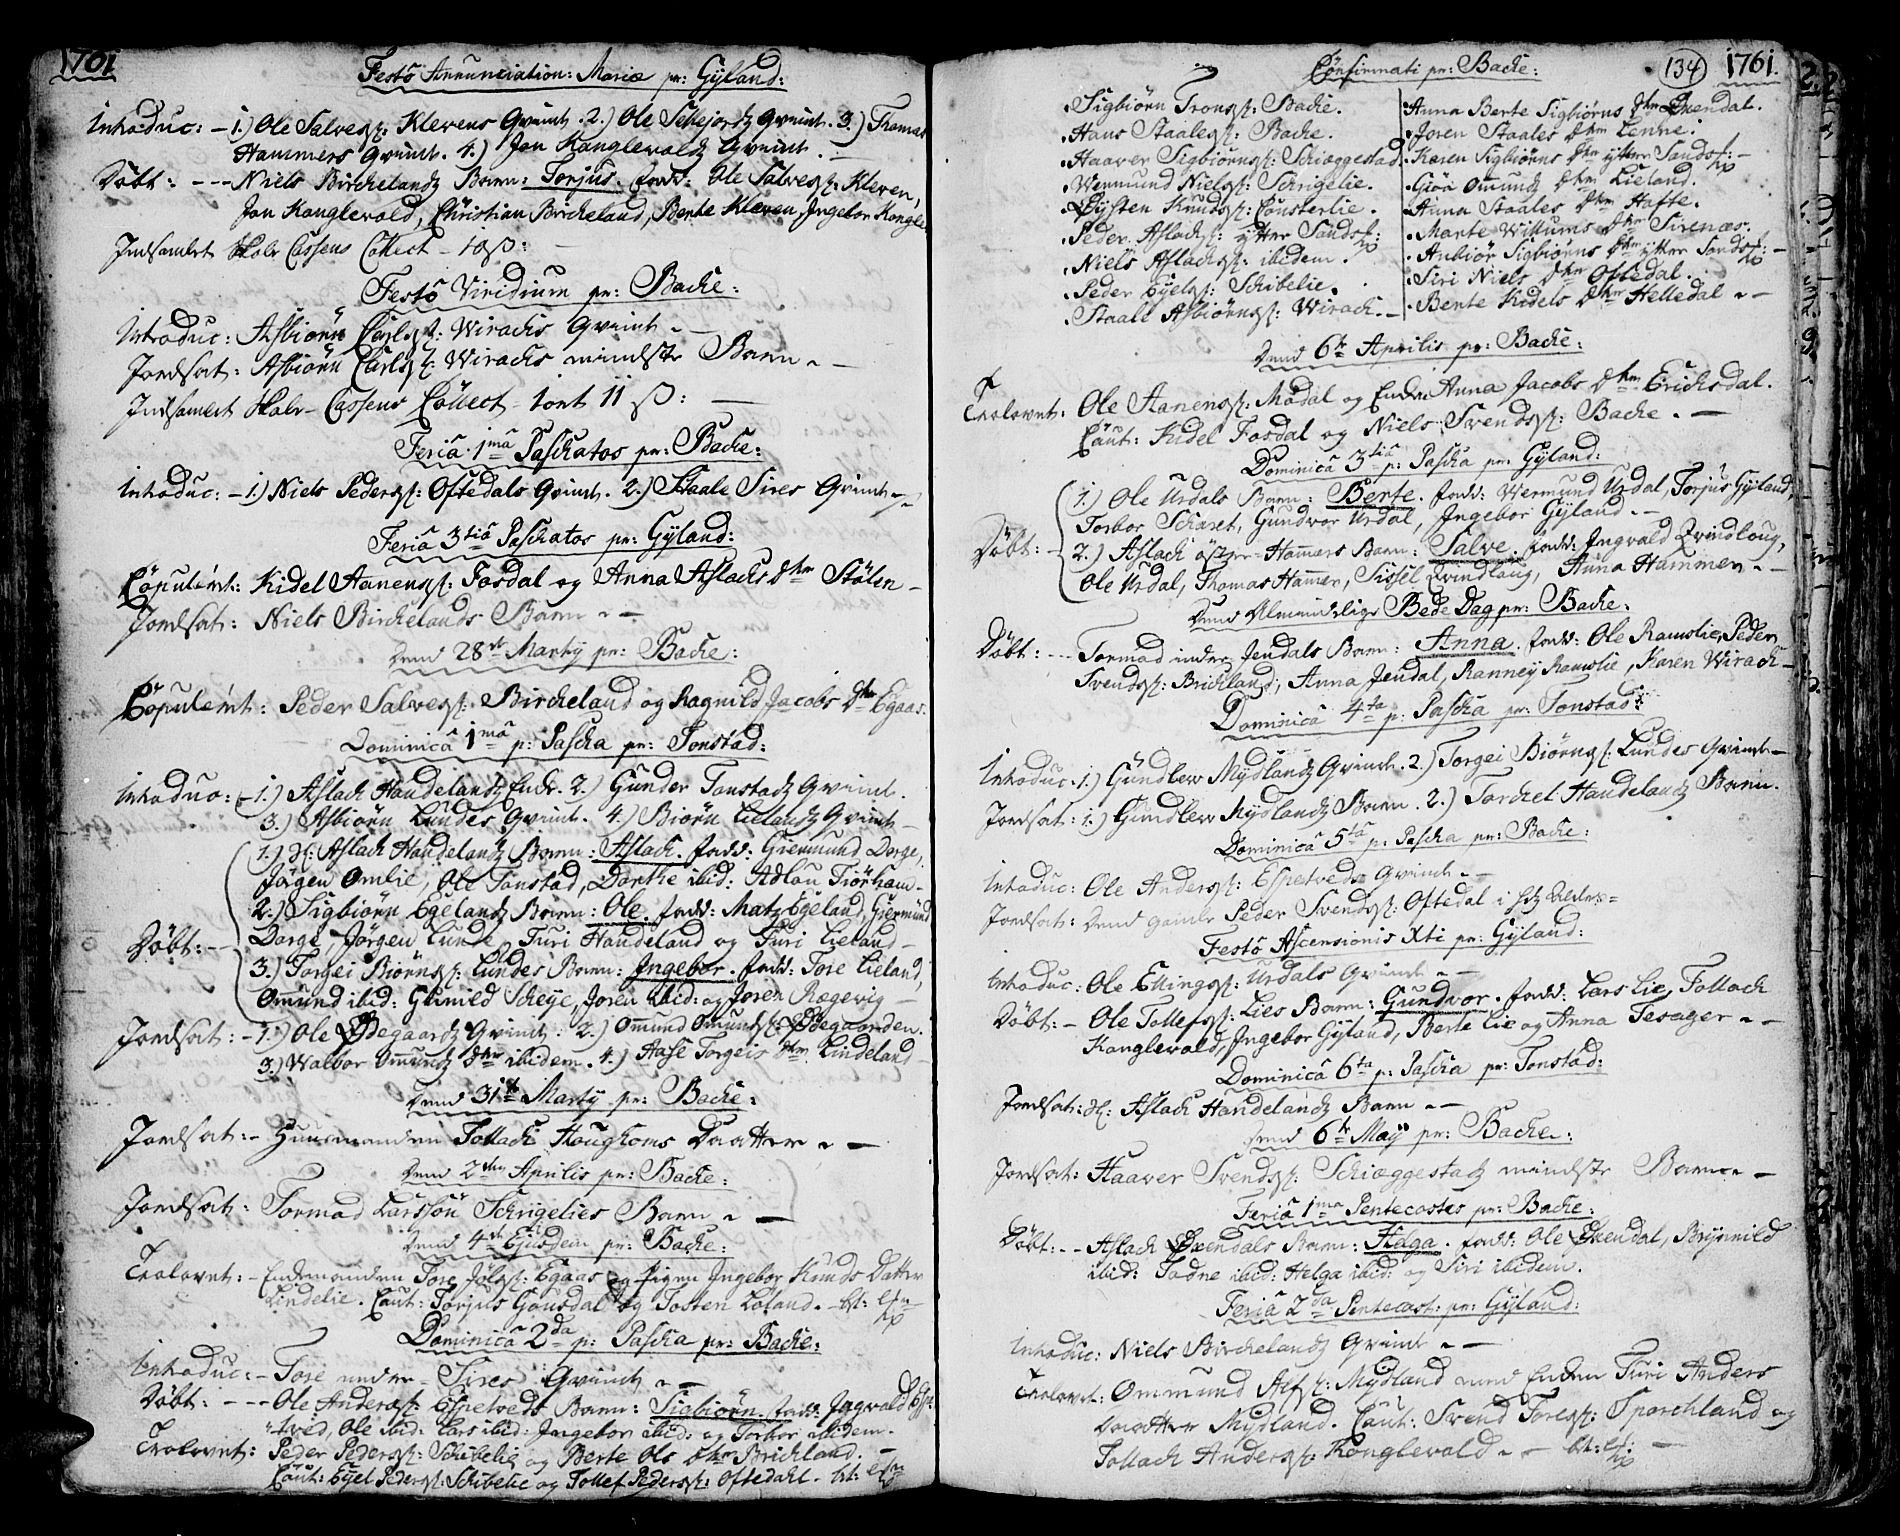 1761
Festo Annunciation: Mariæ pr: Gÿland:
Introduc: - 1.) Ole Salvesøs: Klevens Qvinde. 2.) Ole Qvinde. 3.) Thomas
Hammers Qvinde. 4.) Jon Kanglevaldz Qvinde.
Döbt: --- Niels Birchelandz Barn: Torjus. fadd: Ole Salves: Kleven,
Jon Kanglevald, Christian Bircheland, Berte Kleven, Ingebor Kangle
Indsamlet Skole Cassens Collect - 18 ß:
Festo Viridium pr: Backe:
Introduc: Asbiörn Carls: Wirachs Qvinde
Jordsat: Asbiörn Carls: Wirachs mindste Barn
Indsamlet Skole-Cassens Collect - 1 ort 11 ß:
Feria 1mâ Paschatos pr: Backe:
Introduc: - 1.) Niels Peders: Oftedals Qvinde. 2.) Staale Sires Qvinde
Feria 3tiâ Paschatos pr: Gÿland:
Copulért: Kidel Aanens: Fosdal og Anna Aslachs dtr Stölen
Jordsat: Niels Birchelands Barn
Dend 28de Martÿ pr: Backe:
Copulért: Peder Salves: Bircheland og Ragnild Jacobs Dtr Egaas
Dominicâ 1mâ p: Pascha pr: Tonstad:
Introduc: - 1.) Aslach Haudelandz Enke. 2.) Gunder Tonstadz Qvinde.
3.) Asbiörn Lundes Qvinde. 4.) Biörn Lielandz Qvinde
1.) Sl: Aslach Haudelandz Barn: Aslach. fadd: Giermund Dorge,
Jörgen Omlie, Ole Tonstad, Dorthe ibid: Adlou Tiörhom
2.) Sigbiörn Egelandz Barn: Ole. fadd: Matz Egeland, Giermund
Döbt: -- Dorge, Jörgen Lunde, Turi Haudeland og Turi Lieland
3.) Torgei Biörns: Lundes Barn: Ingebor. fadd: Tore Lieland,
Ommund ibid: Gunild Scheÿe, Joren ibid: og Joren Rægevig
Jordsat: - 1.) Ole Ødegaardz Qvinde: 2.) Omund Omunds: Ødegaarden.
3.) Walbor Omundz dtr ibidem. 4.) Aase Torgeis dtr Lindeland
Dend 31te Martÿ pr: Backe:
Jordsat: - Huusmanden Tollach Houghoms Daatter
Dend 2den Aprilis pr: Backe:
Jordsat: Tormod Larssön Schrigelies Barn
Dend 4de Ejusdem pr: Backe:
Trolovet: - Enkemanden Tore Jols: Egaas og Pigen Ingebor Knuds Datter
Lindelie. Caut: Torjus Gousdal og Tosten Loland.
Dominicâ 2da p: Pascha pr: Backe:
Introduc: - Tore nedre Sires Qvinde
Döbt: --- Ole Anders: Espetveds Barn: Sigbiörn. fadd: Ingvald Espe-
tved, Ole ibid: Lars ibid: Ingebor ibid: og Torbor ibidem.
Trolovet: Peder Peders: Schibelie og Berte Ols dtr Brichland.
Caut: Eÿel Peders: Schibelie og Tollef Peders: Oftedahl.
134 1761.
Confirmati pr: Backe:
Sigbiörn Trons: Backe.
Hans Staales: Backe.
Haaver Sigbiörns: Schiæggestad
Wermund Niels: Schrigelie.
Eÿsten Knuds: Counsterlie.
Peder Aslachs: ÿttre Sands:
Niels Aslachs: ibidem.
Peder Eÿels: Schibelie.
Staale Asbiörns: Wirach.
Anna Berte Sigbiörns dtr Øxendal.
Joren Staales dtr Lenne:
Karen Sigbiörns dtr ÿttre Sands:
Giöa Omundz dtr Lieland.
Anna Staales dtr Hafte.
Marte Willums dtr Sirenæs.
Anbiör Sigbiörns dtr ÿttre Sands:
Siri Niels dtr Oftedal.
Bente Kidels dtr Helledal
Dend 6te Aprilis pr: Backe:
Trolovet: Ole Aanens: Modal og Enken Anna Jacobs dtr Erichsdal.
Caut: Kidel Fosdal og Niels Svends: Backe.
Dominicâ 3tiâ p: Pascha pr: Gÿland:
1.) Ole Urdals Barn: Berte. fadd: Wermund Urdal, Torjus Gÿland,
Torbor Scharet, Gundvor Urdal, Ingebor Gÿland.
Döbt: - 2.) Aslach östre-Hamers Barn: Salve. fadd: Ingvald Qvindloug,
Ole Urdal, Thomas Hamer, Sissel Qvindloug, Anna Hammer
Dend Almindelige Bede Dag pr: Backe:
Döbt: --- Tormod indre Jendals Barn: Anna. fadd: Ole Ramslie, Peder
Svends: Brichland, Anna Jendal, Ranneÿ Ramslie, Karen Wirach
Dominicâ 4ta p: Pascha pr: Tonstad:
Introduc. 1.) Gundlew Mÿdlandz Qvinde. 2.) Torgei Biörns: Lundes Qvinde
Jordsat: 1.) Gundlew Mÿdlandz Barn. 2.) Torchel Haudelandz Barn.
Dominicâ 5ta p: Pascha pr: Backe:
Introduc: Ole Anders: Espetveds Qvinde
Jordsat: Dend gamle Peder Svends: Oftedal i
Festo Ascensionis Xti pr: Gÿland:
Introduc: Ole Ellings: Urdals Qvinde
Döbt: - Ole Tollefs: Lies Barn: Gundvor. fadd: Lars Lie, Tollach
Kanglevald, Ingebor Gÿland, Berte Lie og Anna Tesager
Dominicâ 6ta p: Pascha pr: Tonstad:
Jordsat: Sl: Aslach Haudelandz Barn
Dend 6te Maÿ pr: Backe:
Jordsat: Haaver Svends: Schiæggestadz mindste Barn
Feria 1ma Pentecostes pr: Backe:
Döbt: -- Aslach Øxendals Barn: Helga. fadd: Ole Øxendal, Brÿnild
ibid: Tadne ibid: Helga ibid: og Siri ibidem.
Feria 2da Pentecost: pr: Gÿland:
Introduc: Niels Birchelands Qvinde
Trolovet: Ommund Alfs: Mÿdland med Enken Turi Anders
Daatter Mÿdland. Caut: Svend Tores: Sporchland og
Tollach Anders: Konglevald